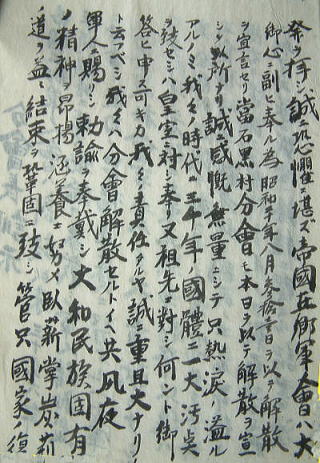 ヲ拝シ誠ニ恐懼堪ズ帝國在郷軍人會ハ大
御心ニ副ヒ奉ル為昭和二十年八月参拾壹日ヲ以テ解散
ヲ宣言セリ當石黒村分會モ本日ヲ以テ解散ヲ宣
シタル所ナリ誠ニ感慨無量ニシテ只熱涙溢ル
アルノミ我々ノ時代ニ三千年ノ國體ニ一大汚点
ヲ残セシハ皇室ニ対シ奉リ又祖先ニ對シ何ント御
答ヒ申ス可キカ我々責任タルヤ誠ニ重且大ナリ
ト云フベシ我々ハ分會解散セルトイヘ共夙夜
軍人賜リシ勅諭ヲ奉戴シ大和民族固有
ノ精神ヲ昂揚涵養ニ努メ臥薪嘗炭
道ヲ益々結束ヲ鞏固ニ致シ只國家ノ須